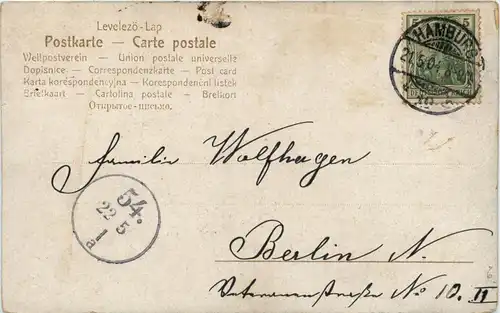 Levelező-Lap
Postkarte — Carte postale
Weltpostverein — Union postale universelle
Dopisnice — Correspondenzkarte — Post card
Karta korespondencyjna — Korespondenční lístek
Briefkaart — Cartolina postale — Brefkort
Открытое письмо.
HAMBURG
5 5
21.5.0
54.
22 5
1
a
Familie Wolfhagen
Berlin N.
Veteranenstraße No 10. II